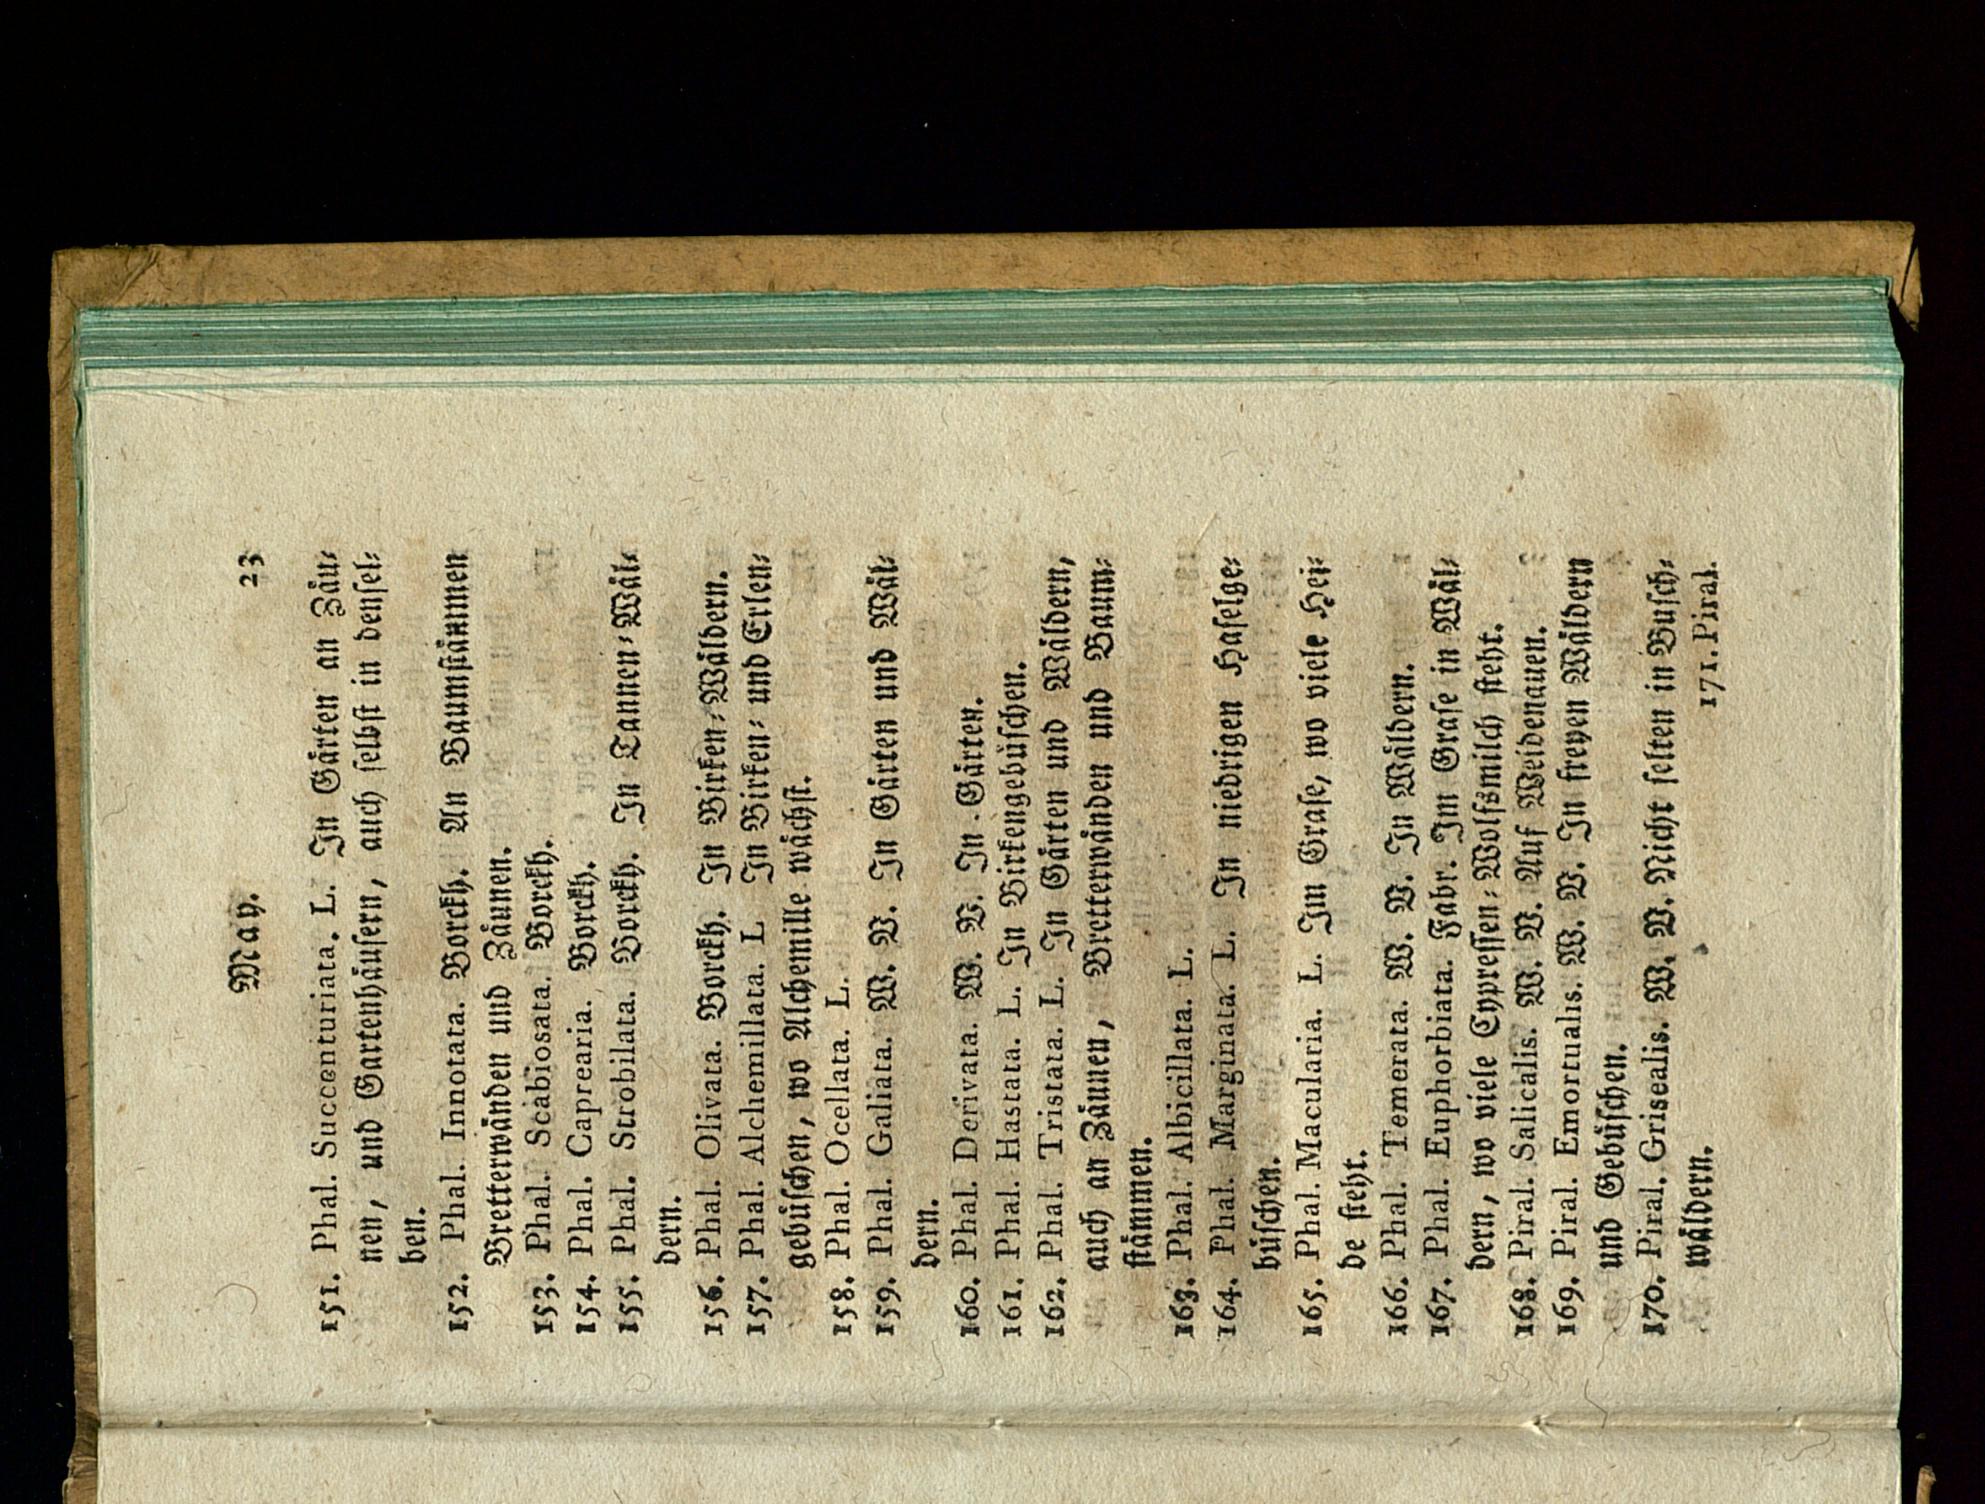 May. 23
151. Phal. Succenturiata. L. In Gärten an Zäu⸗
nen, und Gartenhäusern, auch selbst in densel⸗
ben.
152. Phal. Innotata. Borckh. An Baumstämmen
Bretterwänden und Zäunen.
153. Phal. Scabiosata. Borckh.
154. Phal. Caprearia. Borckh.
155. Phal. Strobilata. Borckh. In Tannen⸗Wäl⸗
dern.
156. Phal. Olivata. Borckh. In Birken⸗Wäldern.
157. Phal. Alchemillata. L In Birken⸗ und Erlen⸗
gebüschen, wo Alchemille wächst.
158. Phal. Ocellata. L.
159. Phal. Galiata. W. V. In Gärten und Wäl⸗
dern.
160. Phal. Derivata. W. V. In Gärten.
161. Phal. Hastata. L. In Birkengebüschen.
162. Phal. Tristata. L. In Gärten und Wäldern,
auch an Zäunen, Bretterwänden und Baum⸗
stämmen.
163. Phal. Albicillata. L.
164. Phal. Marginata. L. In niedrigen Haselge⸗
büschen.
165. Phal. Macularia. L. Im Grase, wo viele Hei⸗
de steht.
166. Phal. Temerata. W. V. In Wäldern.
167. Phal. Euphorbiata. Fabr. Im Grase in Wäl⸗
dern, wo viele Cypressen⸗Wolfsmilch steht.
168. Piral. Salicalis. W. V. Auf Weidenauen.
169. Piral. Emortualis. W. V. In freyen Wäldern
und Gebüschen.
170. Piral. Grisealis. W. V. Nicht selten in Busch⸗
wäldern.
171. Piral.